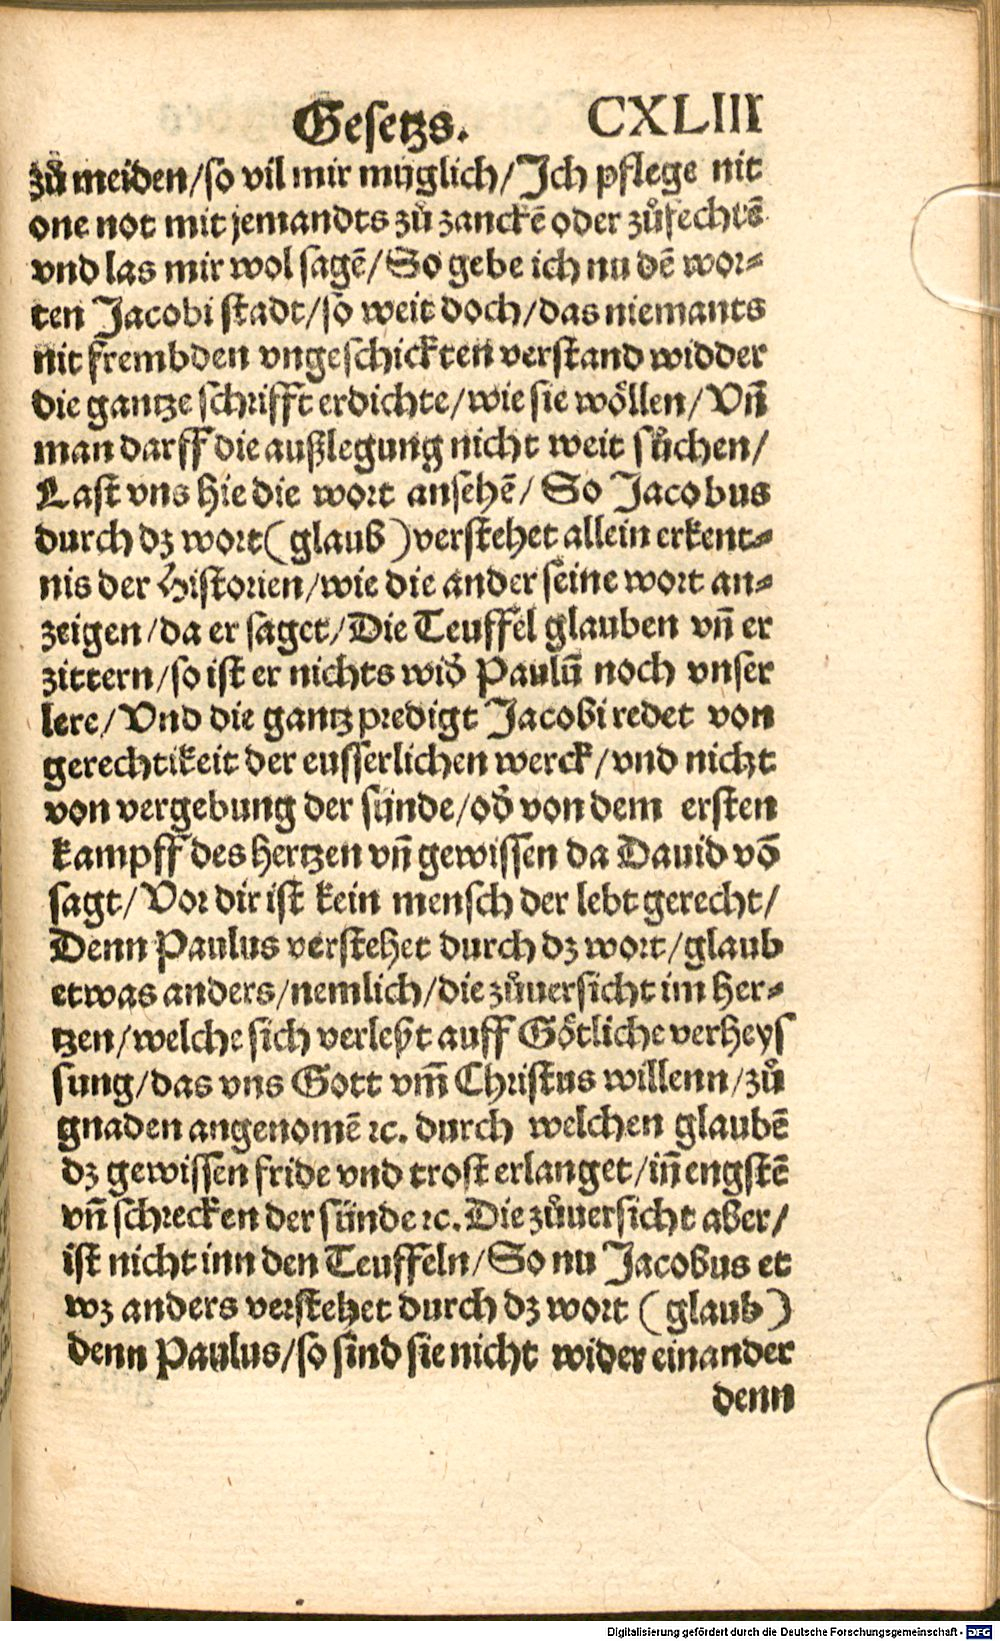 Gesetzs. CXLIII
zů meiden/so vil mir müglich/Ich pflege nit
one not mit jemandts zů zanckē oder zůfechtē
vnd las mir wol sagē/So gebe ich nu dē wor⸗
ten Jacobi stadt/so weit doch/das niemants
nit frembden vngeschickten verstand widder
die gantze schrifft erdichte/wie sie wöllen/Vñ
man darff die außlegung nicht weit sůchen/
Last vns hie die wort ansehē/ So Jacobus
durch dz wort( glaub )verstehet allein erkent⸗
nis der Historien/wie die ander seine wort an⸗
zeigen/da er saget/Die Teuffel glauben vñ er
zittern/so ist er nichts wid̄ Paulū noch vnser
lere/Vnd die gantz predigt Jacobi redet von
gerechtikeit der eusserlichen werck/vnd nicht
von vergebung der sünde/od̄ von dem ersten
kampff des hertzen vñ gewissen da Dauid vō
sagt/Vor dir ist kein mensch der lebt gerecht/
Denn Paulus verstehet durch dz wort/glaub
etwas anders/nemlich/die zůuersicht im her⸗
tzen/welche sich verleßt auff Götliche verheys
sung/das vns Gott vm̄ Christus willenn/zů
gnaden angenomē ꝛc. durch welchen glaubē
dz gewissen fride vnd trost erlanget/iñ engstē
vñ schrecken der sünde ꝛc. Die zůuersicht aber/
ist nicht inn den Teuffeln/So nu Jacobus et
wz anders verstehet durch dz wort ( glaub )
denn Paulus/so sind sie nicht wider einander
denn
Digitalisierung gefördert durch die Deutsche Forschungsgemeinschaft - DFG